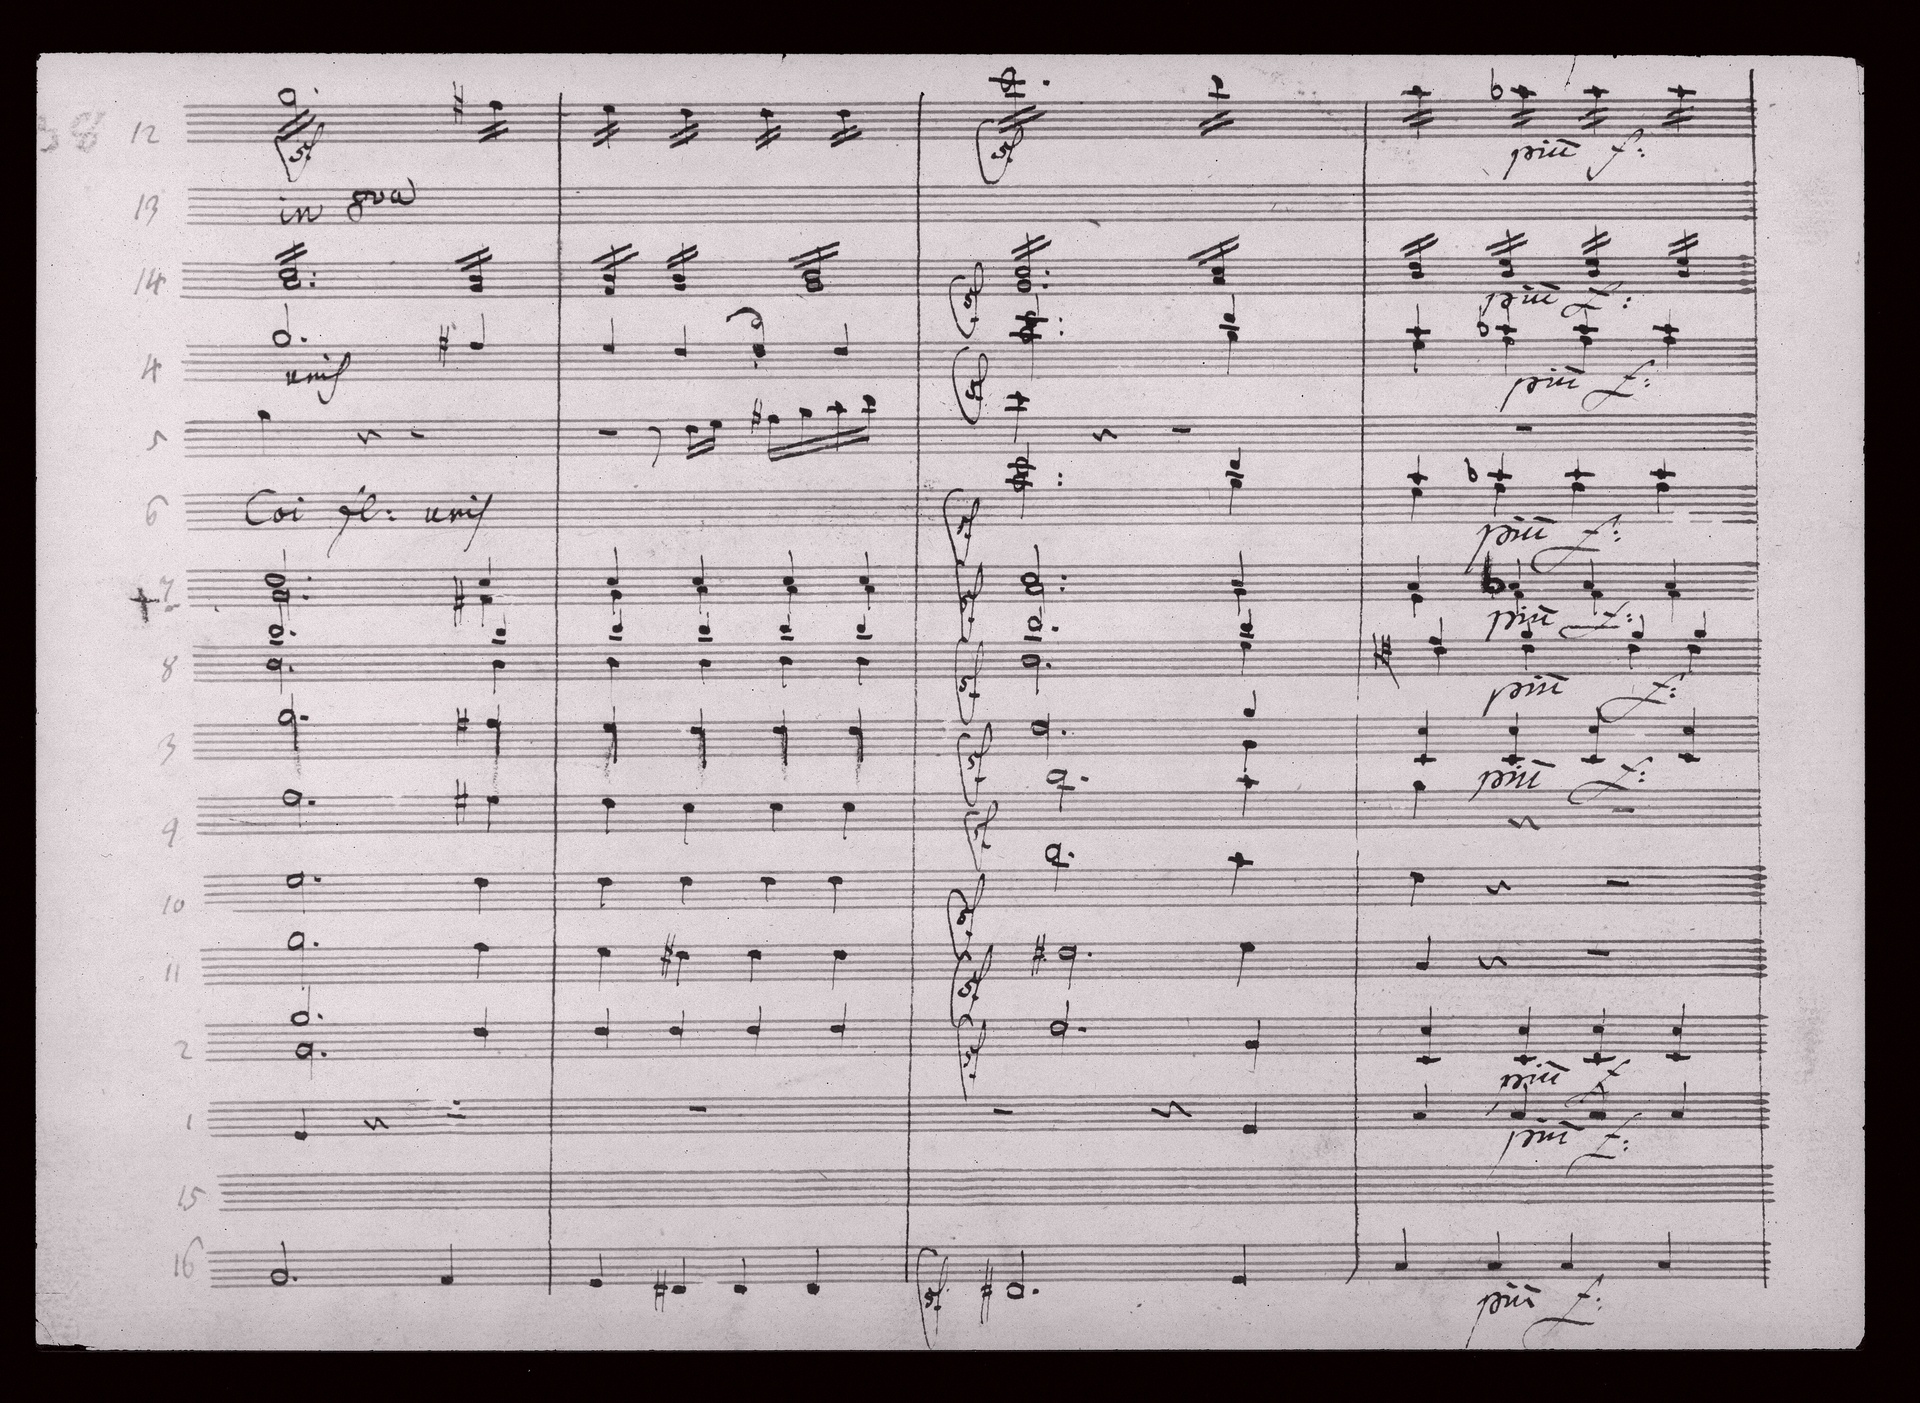 38
12 sf sf più f:
13 in 8va
14 sf più f:
4 unis sf più f:
5
6 Coi fl: unis sf più f:
7 sf più f:
8 sf più f:
3 sf più f:
9 sf
10 sf
11 sf
2 sf più f:
1 più f:
15
16 sf più f: